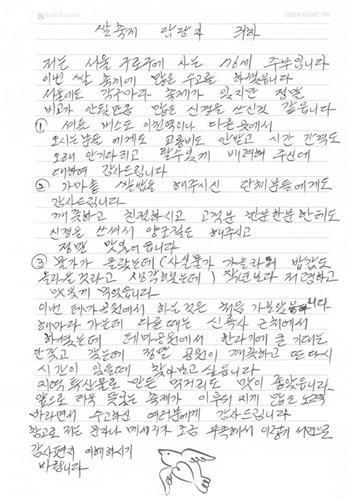 쌀축제 담당자 귀하
저는 서울 구로구에 사는 76세 주부입니다
이번 쌀 축제에 많은 수고를 하셨습니다
서울에도 각구마다 축제가 있지만 정말
비교가 안될만큼 많은 신경을 쓰신것 같읍니다
① 셔틀 버스도 이천역이나 다른곳에서
오시는분들에게도 교통비도 안받고 시간 간격도
오래 안기다리고 탈수있게 배려해 주신데
대하여 감사드립니다
② 가마솥 쌀밥을 해주시신 단체분들에게도
감사드립니다
깨끗하고 친절하시고 고객분 한분한분한테도
신경을 쓰셔서 양조절도 해주시고
정말 맛있어읍니다
③ 물가가 올랐는데 (사실물가 가올라 밥값도
올라을것라고 생각했는데) 작년보다 저렴하고
맛있게 먹었습니다
이번 테마공원에서 하는것은 처음 가보았습니다
해마다 가는데 다른때는 신둔사 근처에서
하셨는데 테마공원에서 한다기에 큰 기대는
안갖고 갔는데 정말 공원이 깨끗하고 또다시
시간이 있을때 찾아가고 싶읍니다
지역 특산물로 만든 먹거리도 많이 좋았읍니다
앞으로 더욱 멋있는 축제가 이루어지게 많은 노력을
바라면서 수고하신 여러분에게 감사드립니다
참고로 저는 문자나 메세지가 조금 부족해서 이렇게 서면으로
감사편지 이해하시기
바랍니다